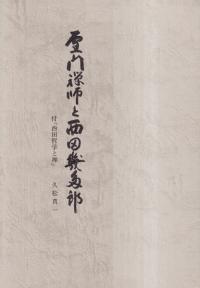 雪門禅師と西田幾多郎
付「西田哲学と禅」 久松真一